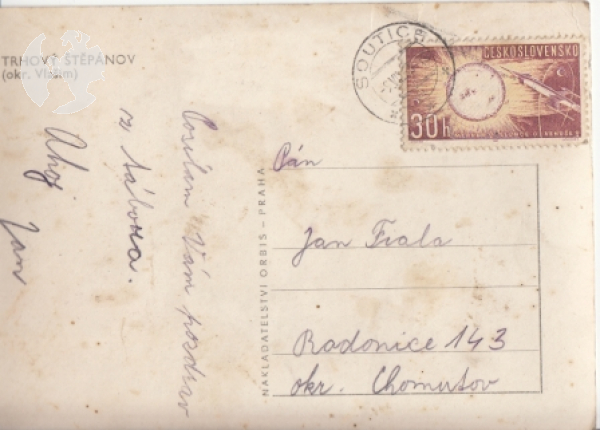 TRHOVÝ ŠTĚPÁNOV
(okr. Vlašim)
Posílám Vám pozdrav
z tábora.
Ahoj
Jan
NAKLADATELSTVÍ ORBIS – PRAHA
SOUTICE
ČESKOSLOVENSKO
30h
Pán
Jan Fiala
Radonice 143
okr. Chomutov